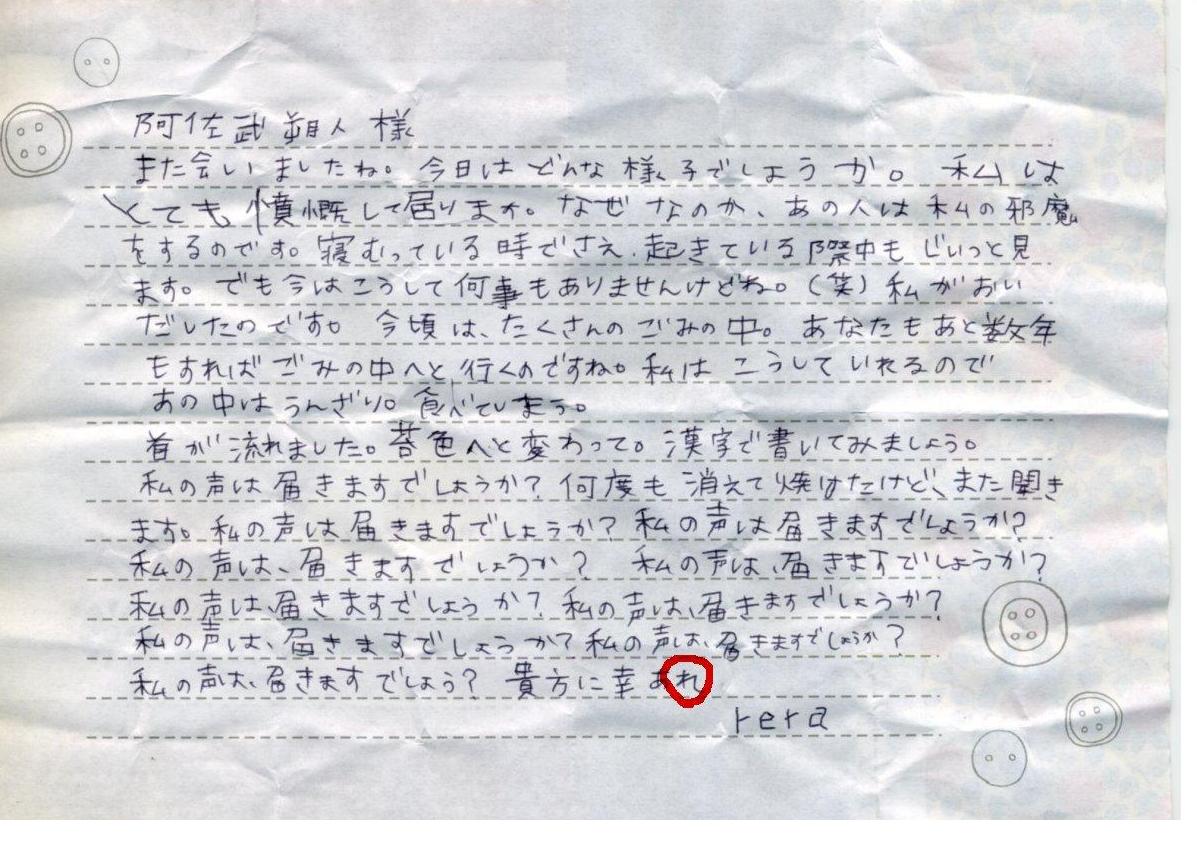 阿佐武朔人 様
また会いましたね。今日はどんな様子でしょうか。私は
とても憤慨して居ります。なぜなのか、あの人は私の邪魔
をするのです。寝むっている時でさえ、起きている際中もじいっと見
ます。でも今はこうして何事もありませんけどね。(笑)私がおい
だしたのです。今頃は、たくさんのごみの中。あなたもあと数年
もすればごみの中へと行くのですね。私はこうしていれるので
あの中はうんざり。食べてしまう。
首が流れました。苔色へと変わって。漢字で書いてみましょう。
私の声は届きますでしょうか?何度も消えて焼けたけど、また開き
ます。私の声は届きますでしょうか?私の声は届きますでしょうか?
私の声は、届きますでしょうか? 私の声は、届きますでしょうか?
私の声は、届きますでしょうか?私の声は、届きますでしょうか?
私の声は、届きますでしょうか?私の声は、届きますでしょうか?
私の声は、届きますでしょう? 貴方に幸あれ
rera